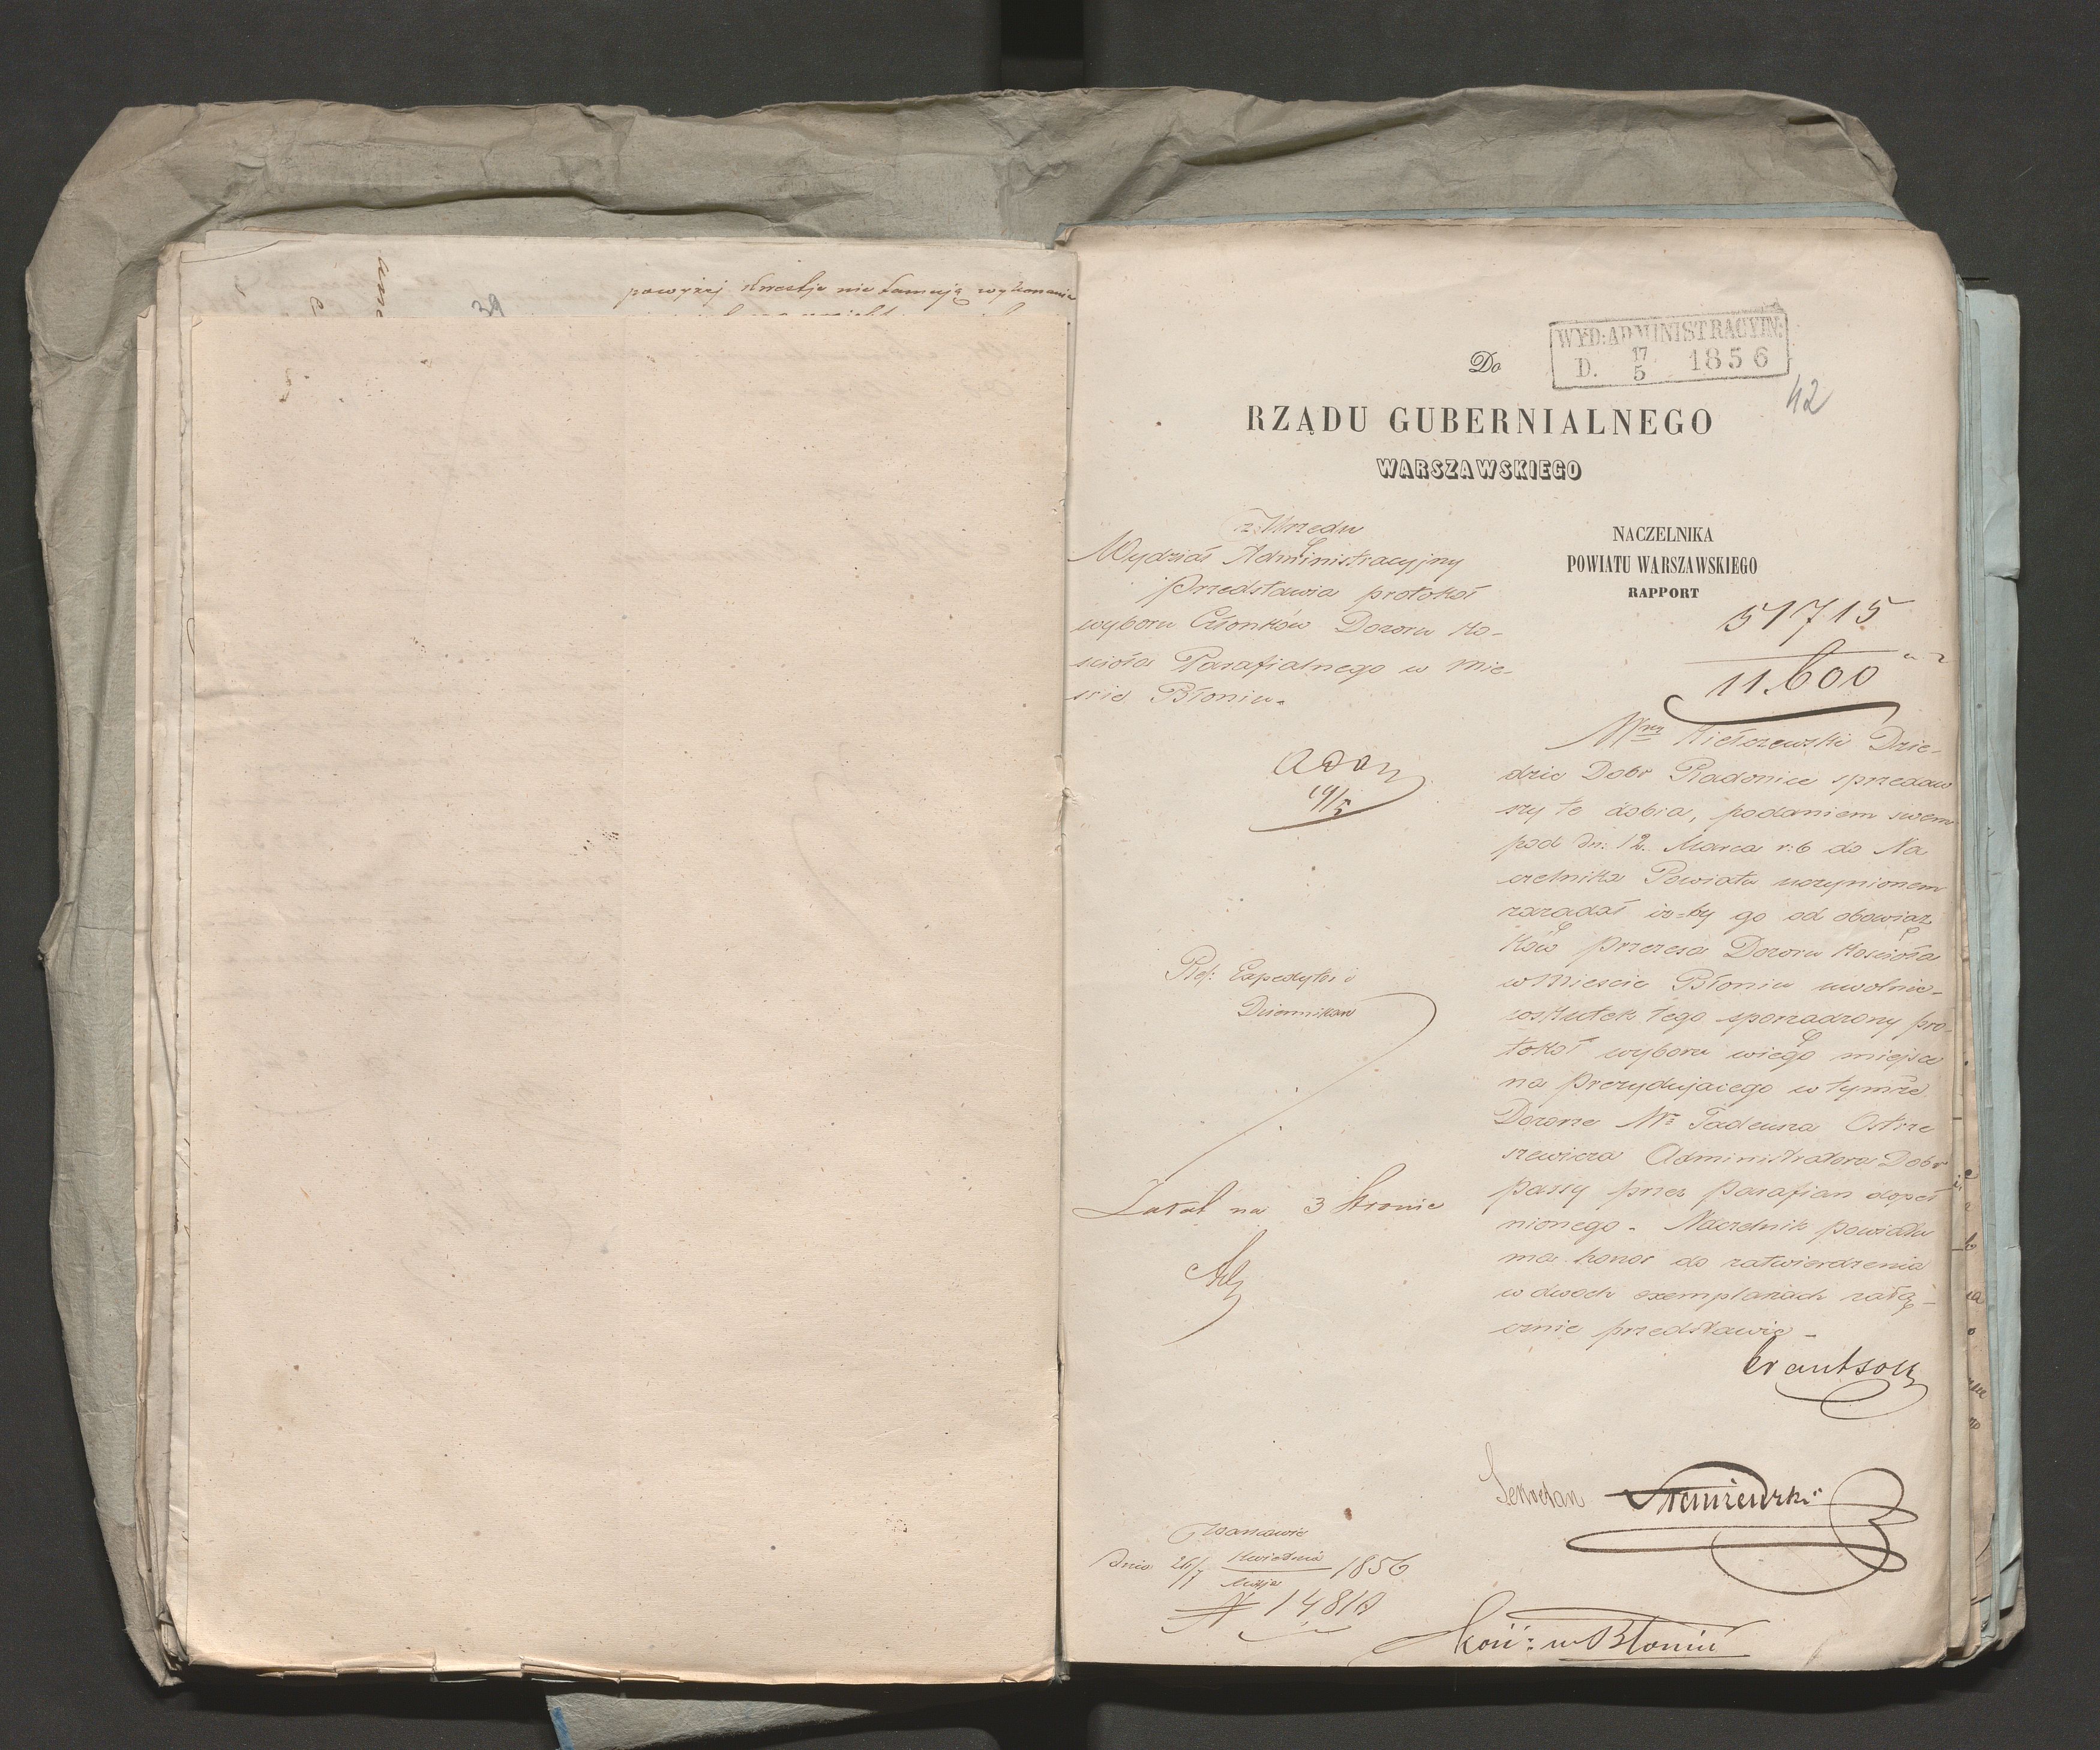 powyżej kwestje nie tamują wykonanie
39
WYD: ADMINISTRACYJN:
D. 17/5 1856
42
Do
RZĄDU GUBERNIALNEGO
WARSZAWSKIEGO
z Urzędu
Wydział Administracyjny
Przedstawia protokół
wyboru Członków Dozoru Ko-
ścioła Parafialnego w Mie-
ście Błoniu.
19/5
Ref: Expedytor i
Dziennikarz
3 Stronie
NACZELNIKA
POWIATU WARSZAWSKIEGO
RAPPORT
51715
11.600
Kiełczewski Dzie-
dzic Dobr Radonice sprzedaw
szy te dobra, podaniem swem
pod dn: 12. Marca r: b do Na
czelnika Powiatu uczynionem
zarządał iż=by go od obowiąz
ków Prezesa Dozoru Kościoła
w Mieście Błoniu uwolnić-
wskutek tego sporządzony pro-
tokół wyboru w iego miejsce
na Prezydującego w tymże
Dozorze Wo Tadeusza Ostrze
szewicza Administratora Dobr
Passy przez Parafian dopeł
nionego - Naczelnik Powiatu
ma honor do zatwierdzenia
w dwoch exemplarzach załą-
cznie przedstawić -
Sekretarz
Warszawie
dnia 26/7 Kwietnia/Maja 1856
N 14818
Kość: w Błoniu